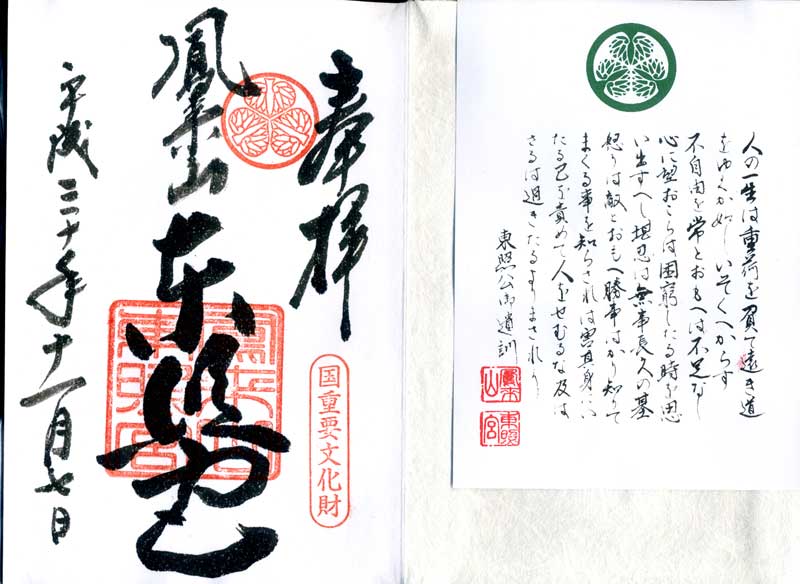 人の一生は重荷を負て遠き道
をゆくか如しいそくへからす
不自由を常とおもへは不足なし
心に望おこらは困窮したる時を思
い出すへし堪忍は無事長久の基
怒りは敵とおもへ勝事はかり知って
まくる事を知らされは害其身にい
たる己を責めて人をせむるな及は
さるは過きたるよりまされり
東照公御遺訓
鳳来山
東照宮
奉拝
国重要文化財
鳳来山東照宮
鳳来山
東照宮
平成三十年十一月七日